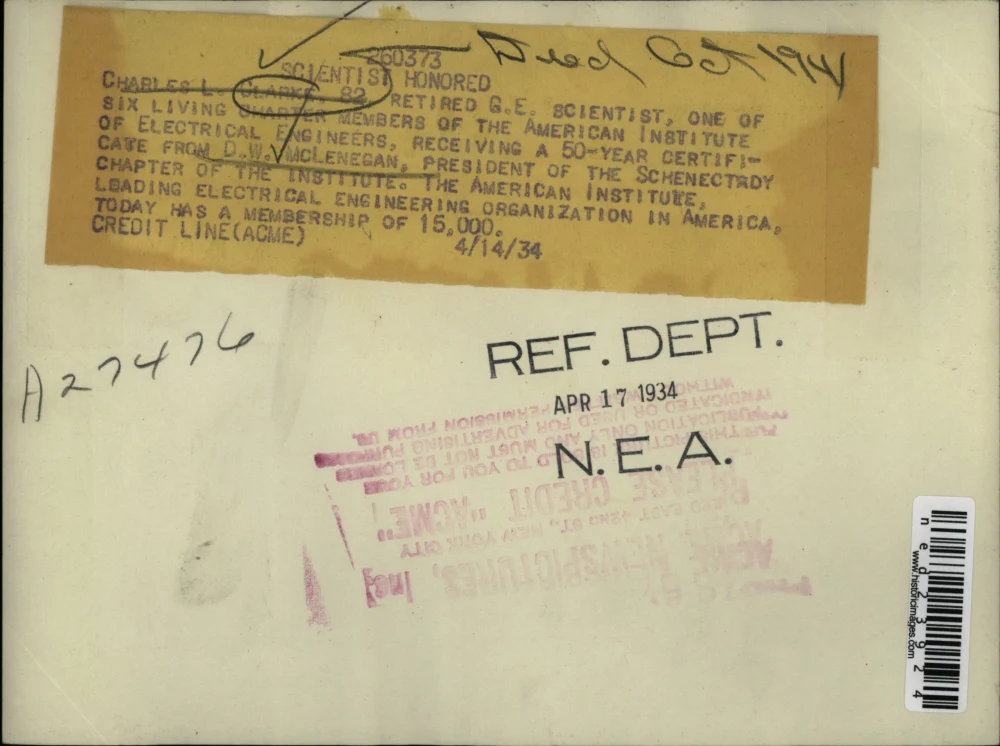 Died Oct 1941
260373
SCIENTIST HONORED
CHARLES L. CLARKE, 82, RETIRED G.E. SCIENTIST, ONE OF
SIX LIVING CHARTER MEMBERS OF THE AMERICAN INSTITUTE
OF ELECTRICAL ENGINEERS, RECEIVING A 50-YEAR CERTIFI-
CATE FROM D.W. MCLENEGAN, PRESIDENT OF THE SCHENECTADY
CHAPTER OF THE INSTITUTE. THE AMERICAN INSTITUTE,
LEADING ELECTRICAL ENGINEERING ORGANIZATION IN AMERICA,
TODAY HAS A MEMBERSHIP OF 15,000.
CREDIT LINE(ACME)
4/14/34
A27476
REF. DEPT.
APR 17 1934
N.E.A.
ACME NEWSPICTURES, Inc
220 EAST 42ND ST., NEW YORK CITY
PLEASE CREDIT "ACME"
THIS PICTURE IS SOLD TO YOU FOR YOUR
PUBLICATION ONLY AND MUST NOT BE LOANED
SYNDICATED OR USED FOR ADVERTISING PURPOSE
WITHOUT WRITTEN PERMISSION FROM US.
ned23924
www.historicimages.com